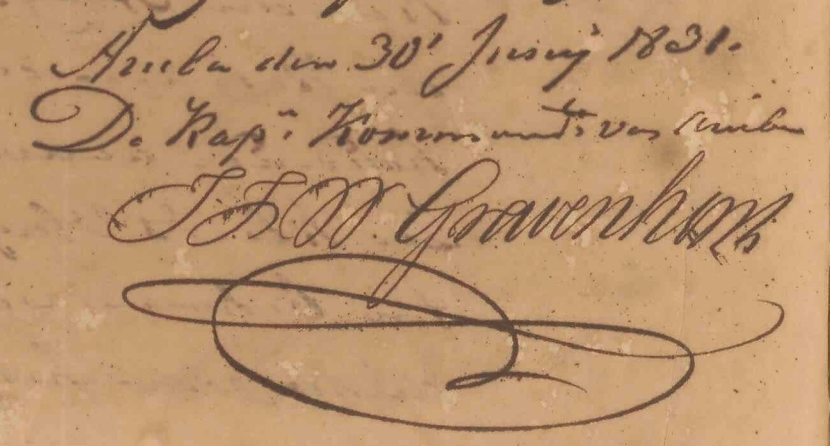 Aruba den 30' Junij 1831.
De Kapn: Kommandt: van Aruba
J. F. W. Gravenhorst